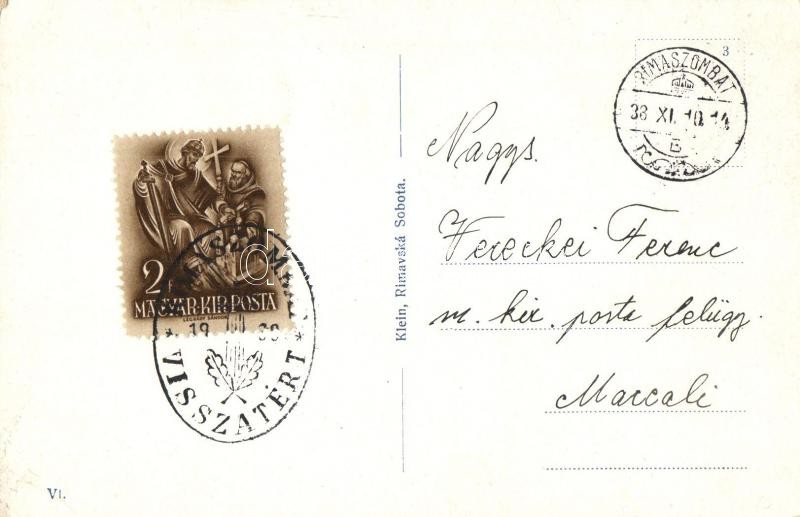 3
RIMASZOMBAT
38 XI. 10. 14
B
Nagys.
Vereckei Ferenc
m. kir. posta felügy.
Marcali
Klein, Rimavská Sobota.
2f
MAGYAR·KIR·POSTA
LEGRÁDY SÁNDOR
* 19 III *
VISSZATÉRT
VI.